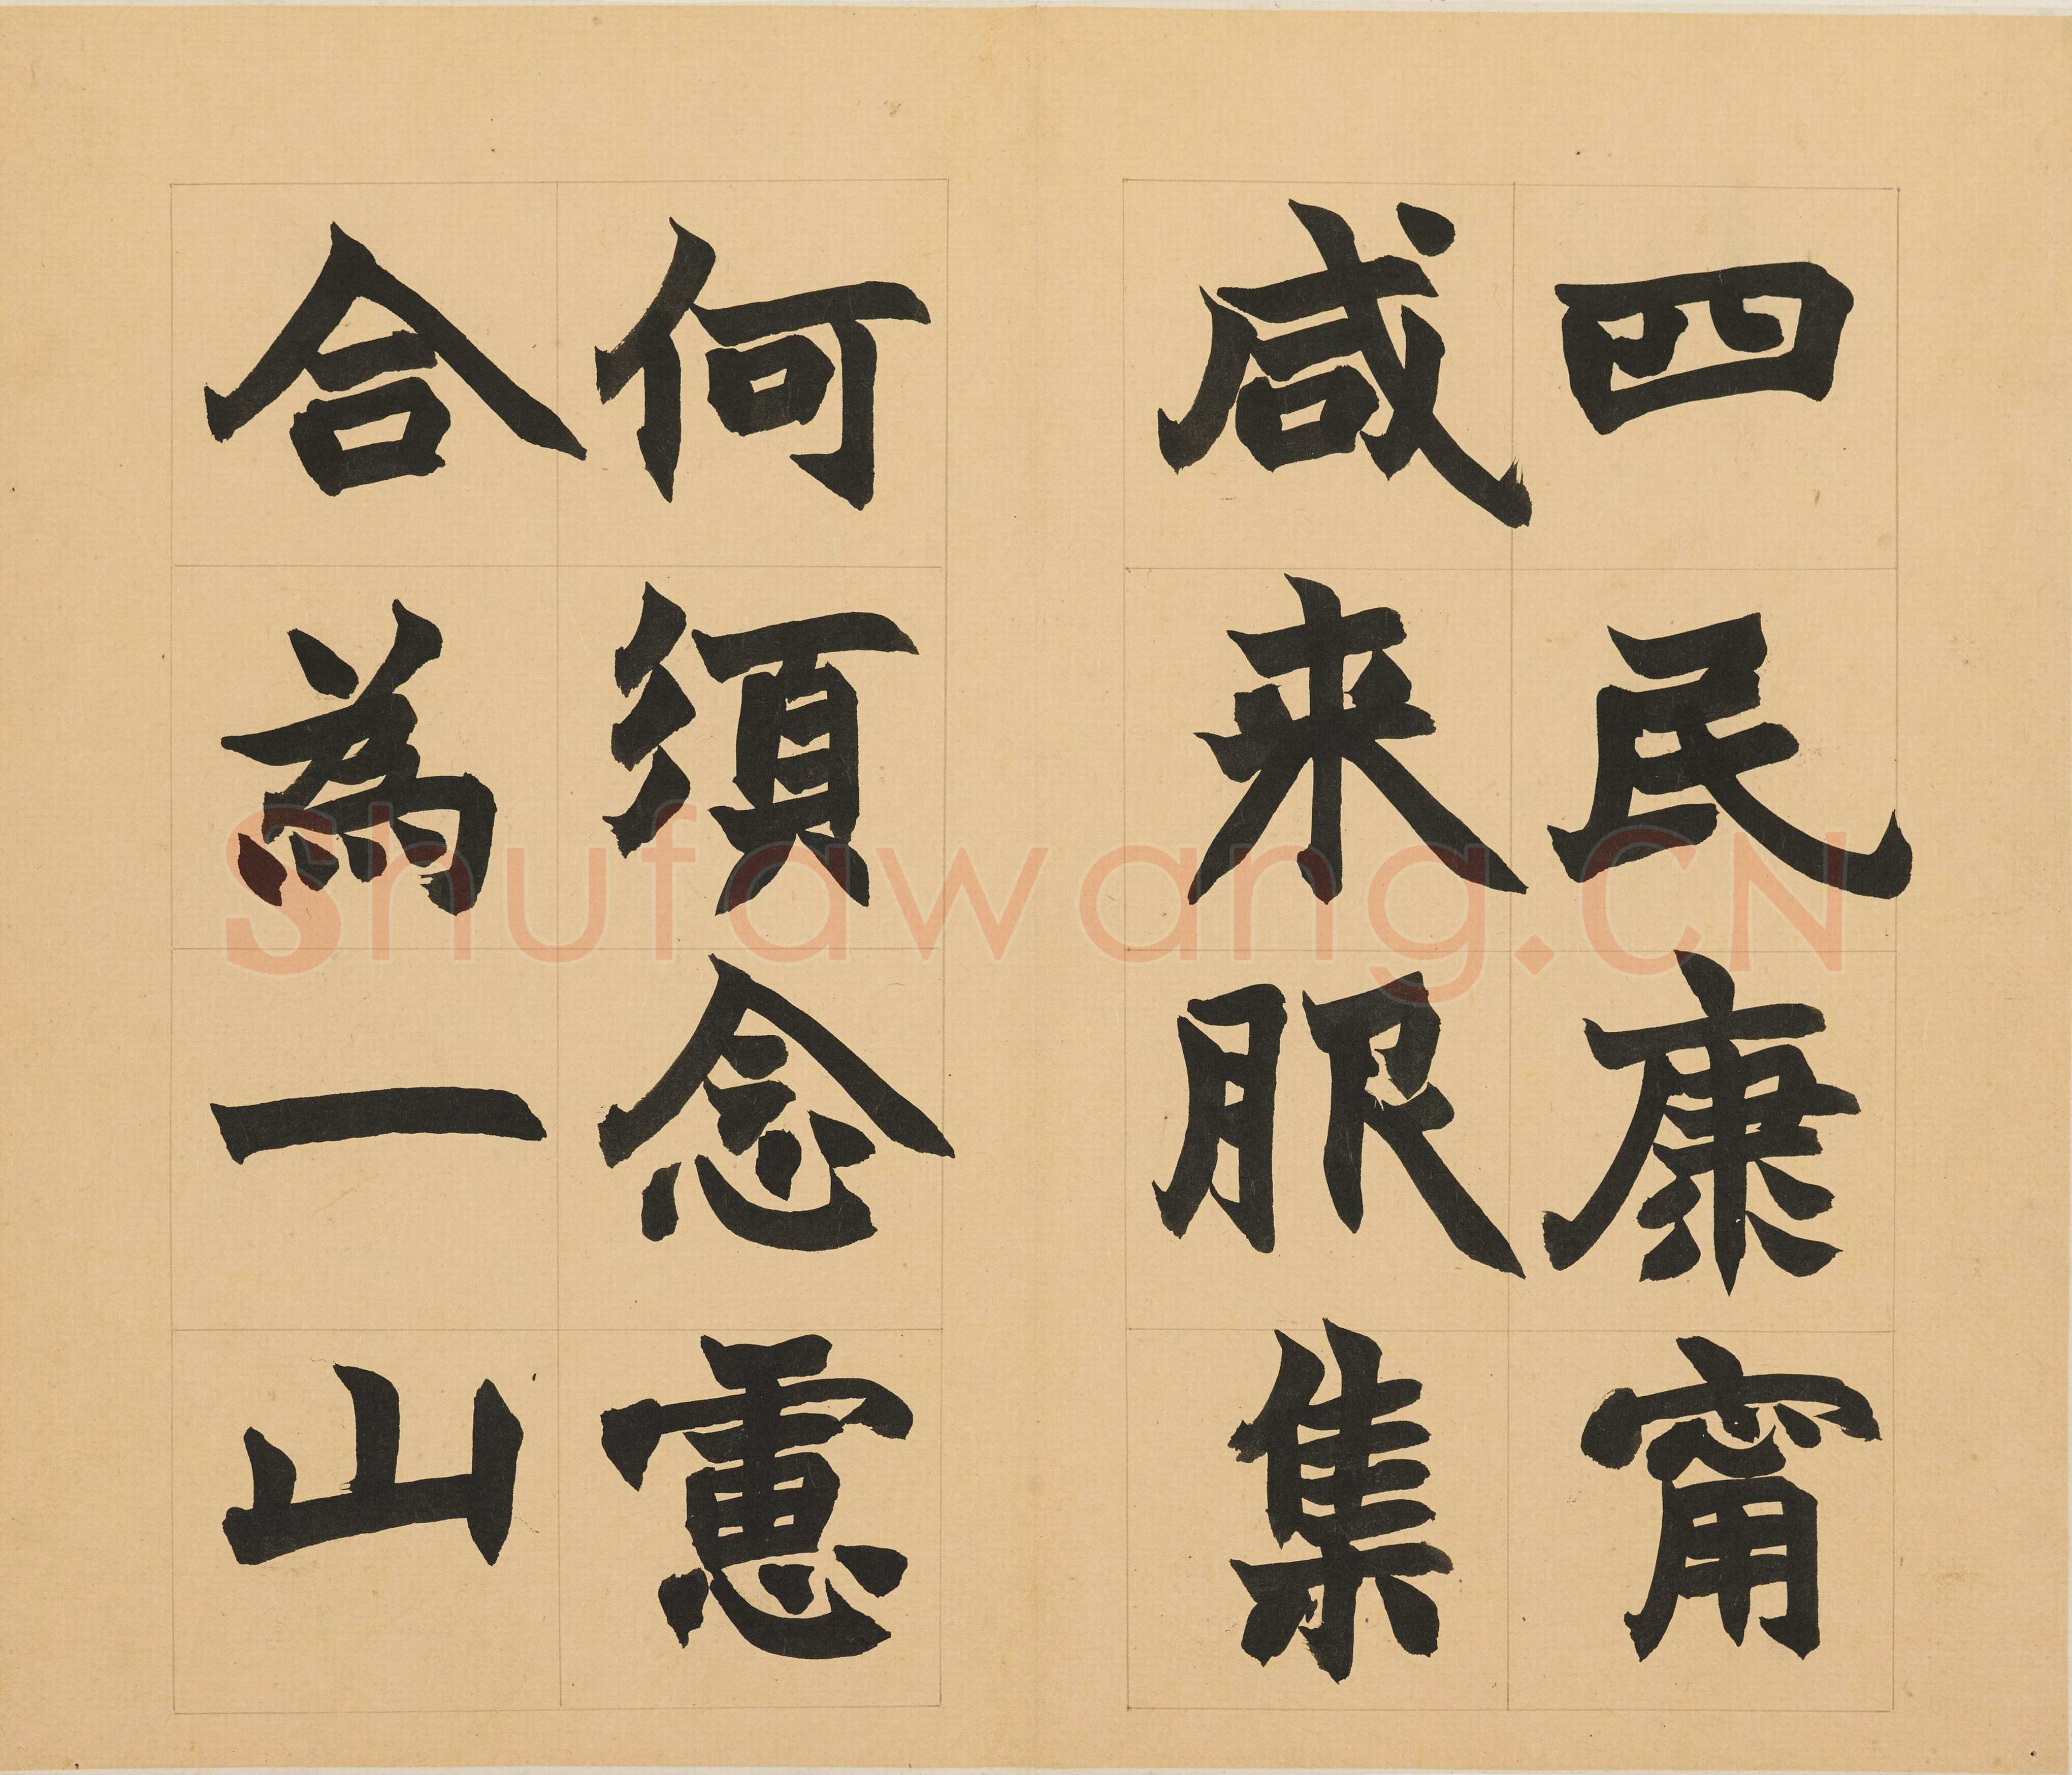 四民康甯
咸来服集
何須念慮
合為一山
Shufawang.CN